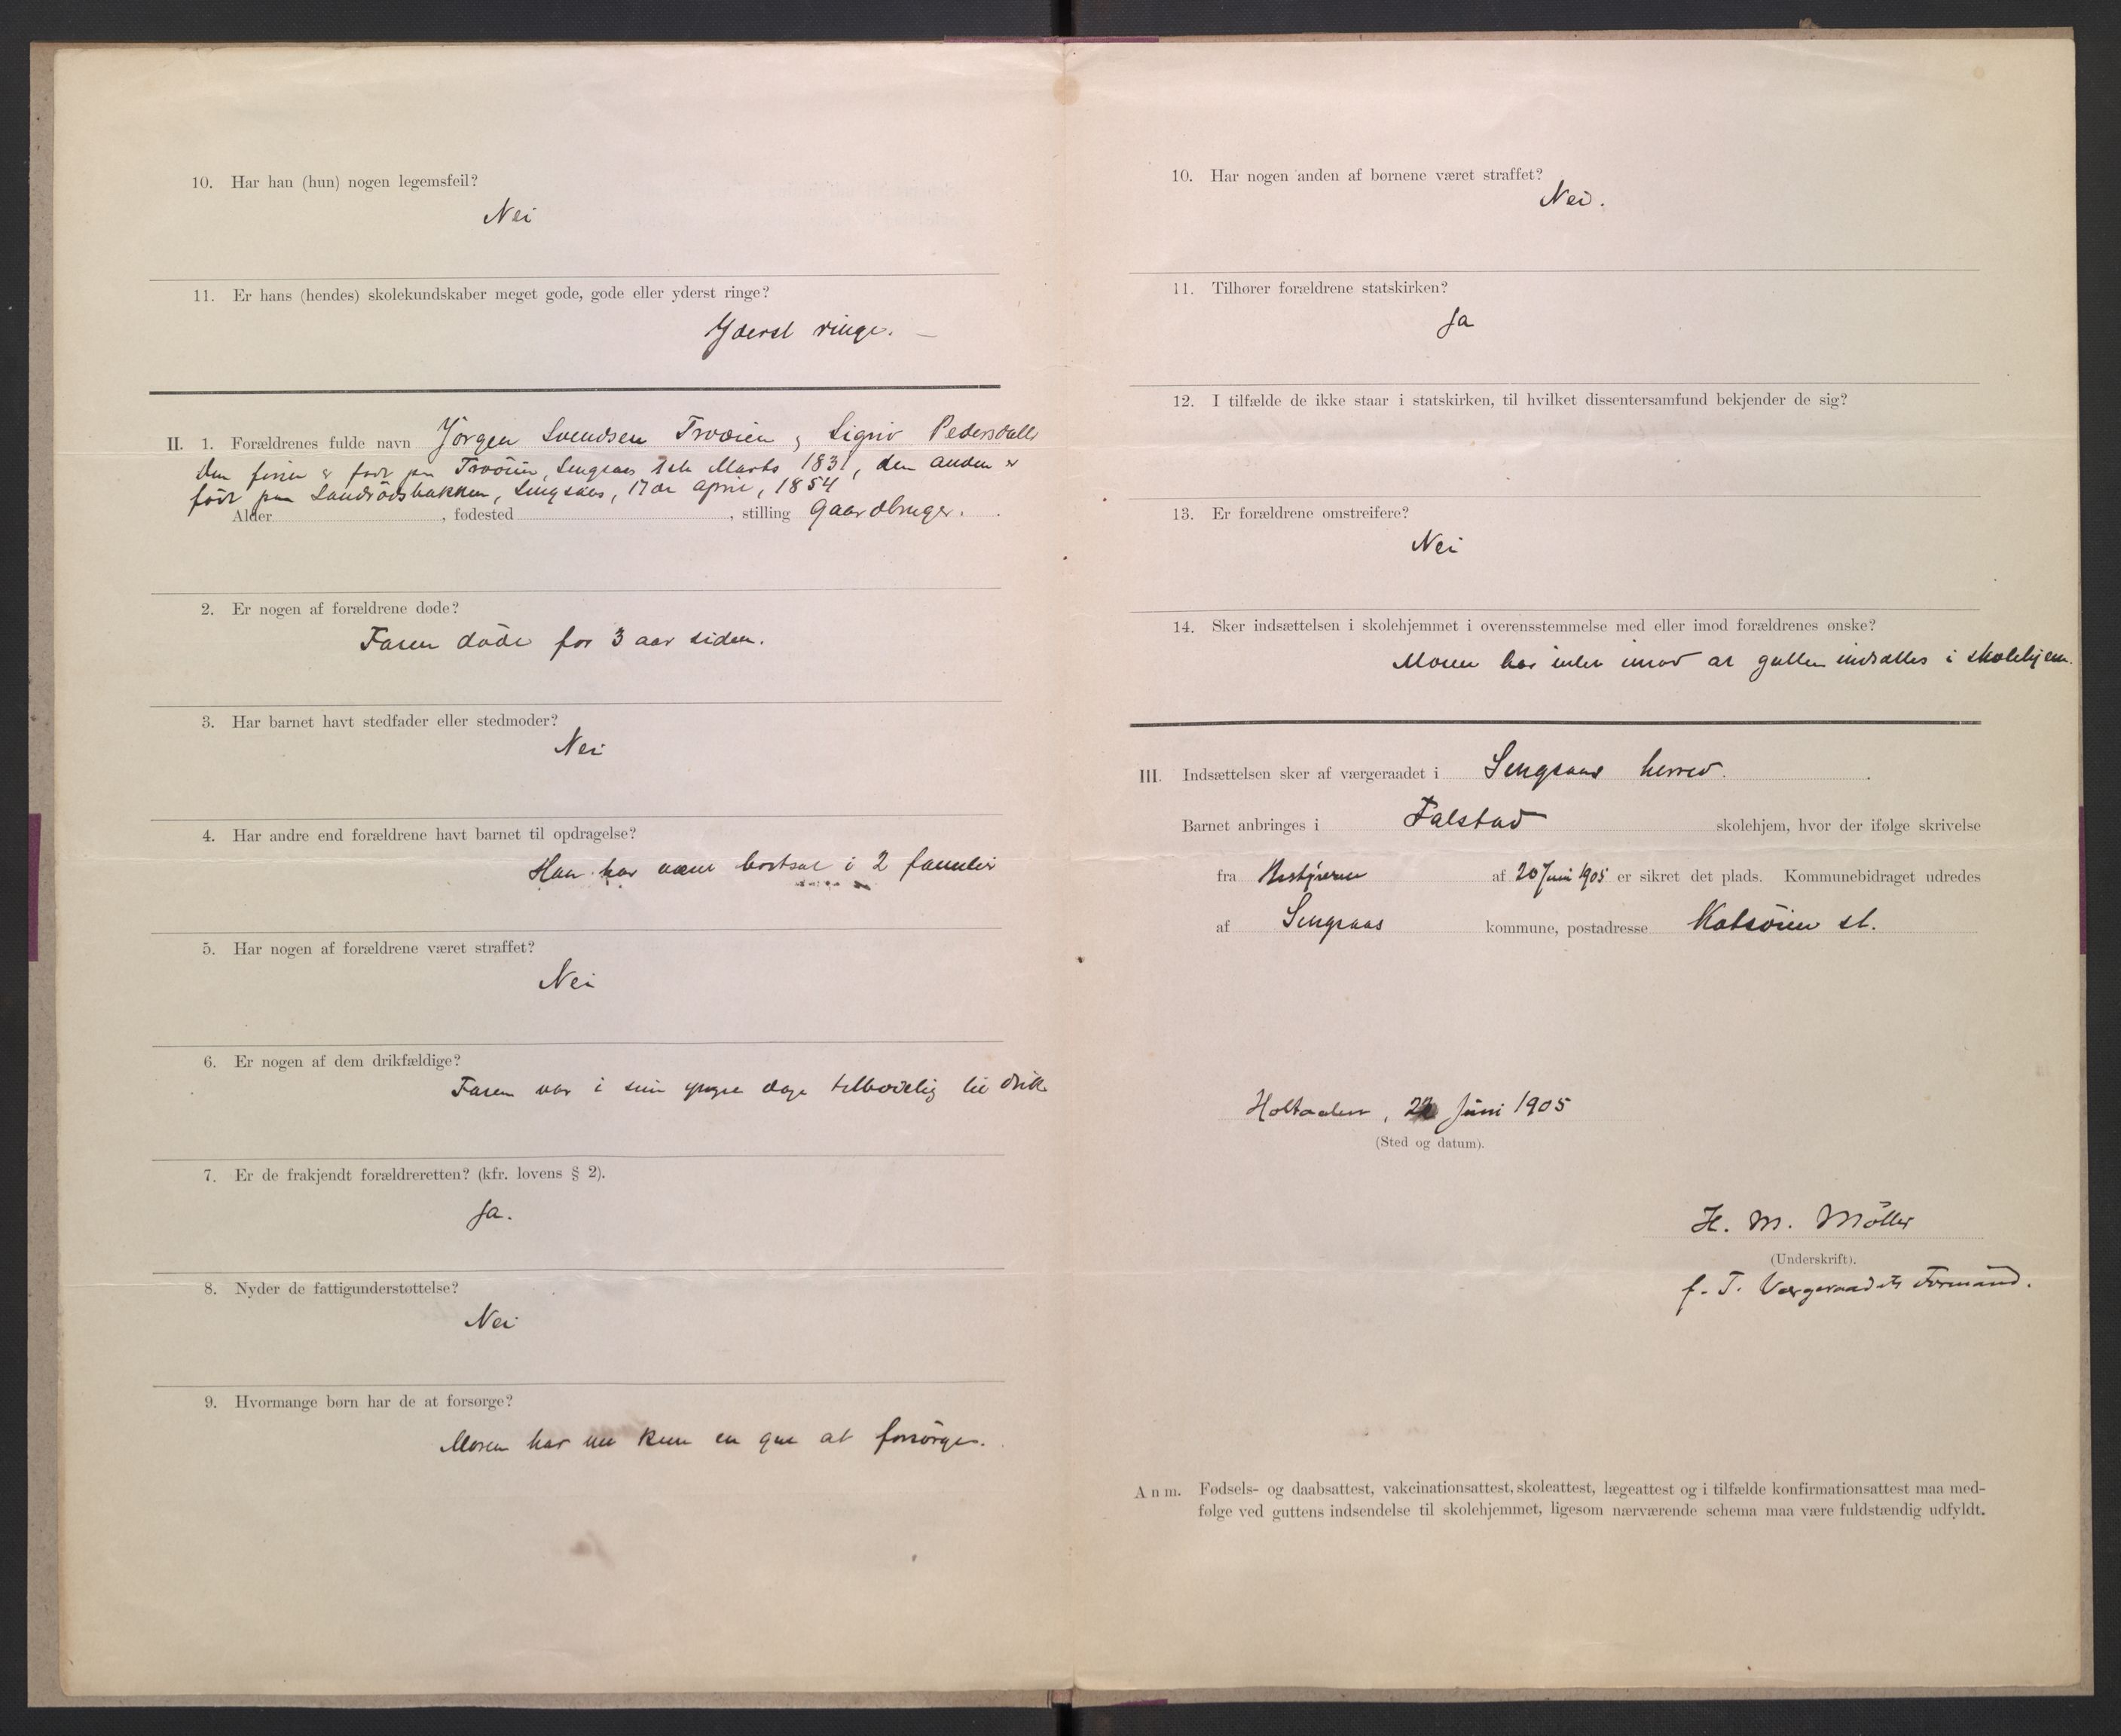 10. Har han (hun) nogen legemsfeil?
Nei
11. Er hans (hendes) skolekundskaber meget gode, gode eller yderst ringe?
Yderst ringe. —
II. 1. Forældrenes fulde navn Jörgen Svendsen Trøöien & Sigrid Pedersdatter
Den første er født paa Sengsaas 1ste Marts 1831, den anden er
född paa Singsaas, 17de April, 1854
Alder , fødested , stilling Gaardbruger.
2. Er nogen af forældrene døde?
Faren döde for 3 aar siden.
3. Har barnet havt stedfader eller stedmoder?
Nei
4. Har andre end forældrene havt barnet til opdragelse?
Han har været bortsat i 2 familier
5. Har nogen af forældrene været straffet?
Nei
6. Er nogen af dem drikfældige?
Faren var i sin yngre dage tilbøielig til drik
7. Er de frakjendt forældreretten? (kfr. lovens § 2).
Ja.
8. Nyder de fattigunderstøttelse?
Nei
9. Hvormange børn har de at forsørge?
Moren har nu kun en gut at forsörge.
10. Har nogen anden af børnene været straffet?
Nei.
11. Tilhører forældrene statskirken?
Ja
12. I tilfælde de ikke staar i statskirken, til hvilket dissentersamfund bekjender de sig?
13. Er forældrene omstreifere?
Nei
14. Sker indsættelsen i skolehjemmet i overensstemmelse med eller imod forældrenes ønske?
Moren har intet imod at gutten indsættes i skolehjem.
III. Indsættelsen sker af værgeraadet i Sengsaas herred.
Barnet anbringes i Falstad skolehjem, hvor der ifølge skrivelse
fra Bestyreren af 20 Juni 1905 er sikret det plads. Kommunebidraget udredes
af Sengsaas kommune, postadresse Kotsöien st.
Holtaalen, Juni 1905
(Sted og datum).
H. M. Möller
(Underskrift).
f. T. Værgeraadets Formand.
Anm. Fødsels- og daabsattest, vakcinationsattest, skoleattest, lægeattest og i tilfælde konfirmationsattest maa med-
følge ved guttens indsendelse til skolehjemmet, ligesom nærværende schema maa være fuldstændig udfyldt.